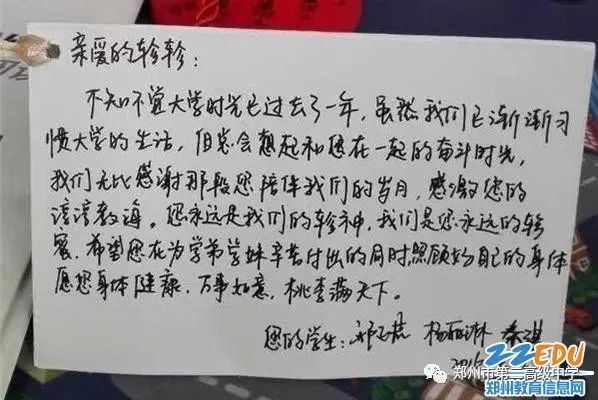 亲爱的轸轸:
不知不觉大学时光已过去了一年,虽然我们已渐渐习
惯大学的生活,但总会想起和您在一起的奋斗时光,
我们无比感谢那段您陪伴我们的岁月,感激您的
谆谆教诲。您永远是我们的轸神,我们是您永远的轸
蜜。希望您在为学弟学妹辛苦付出的同时,照顾好自己的身体
愿您身体健康,万事如意,桃李满天下。
您的学生: 杨丽琳
22EDU
郑州市第二高级中学
郑州教育信息网